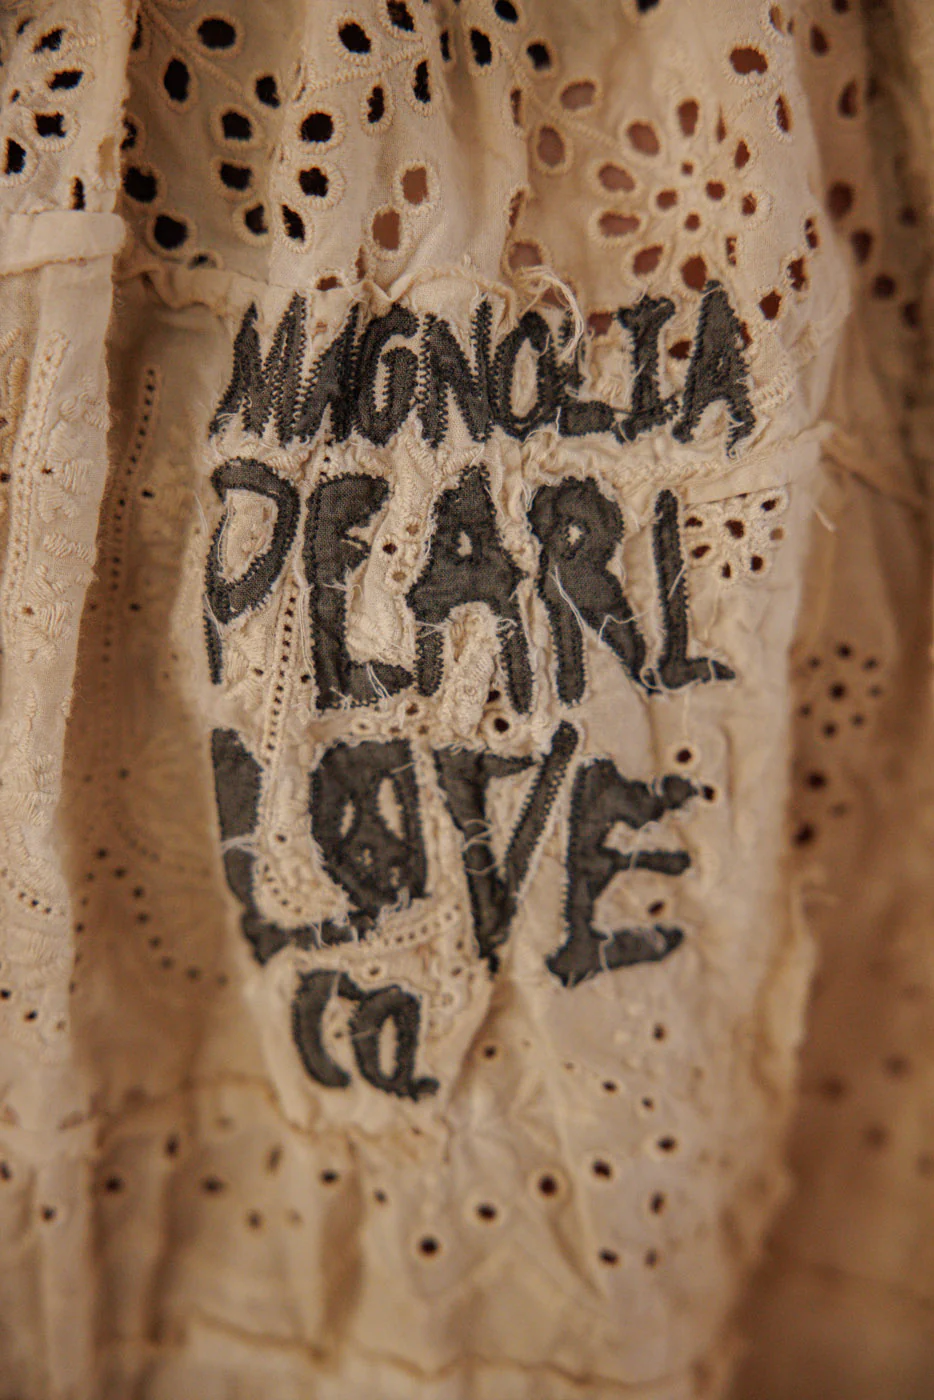 MAGNOLIA
PEARL
LOVE
Co